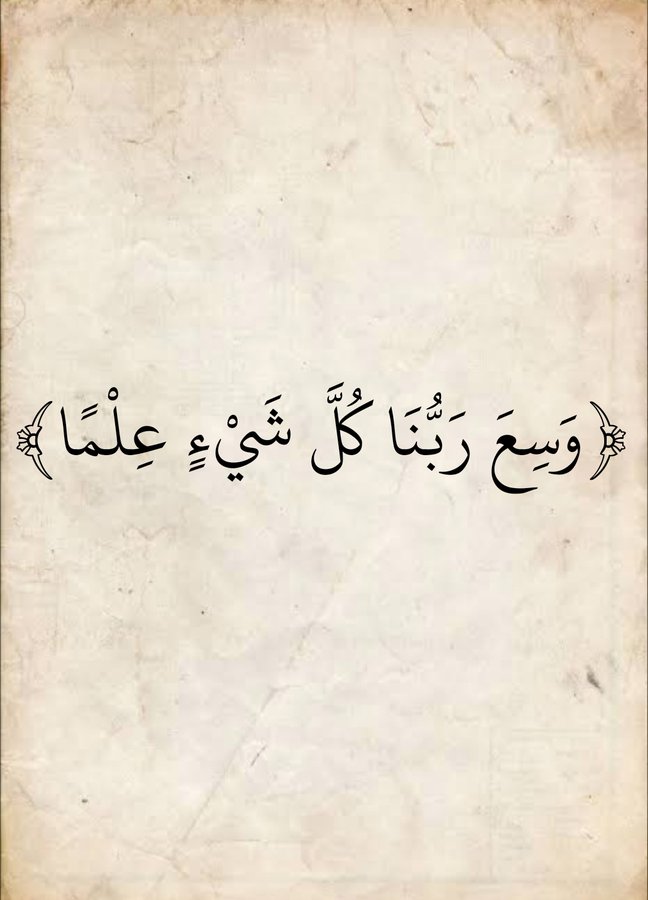 ﴿وَسِعَ رَبُّنَا كُلَّ شَيْءٍ عِلْمًا﴾